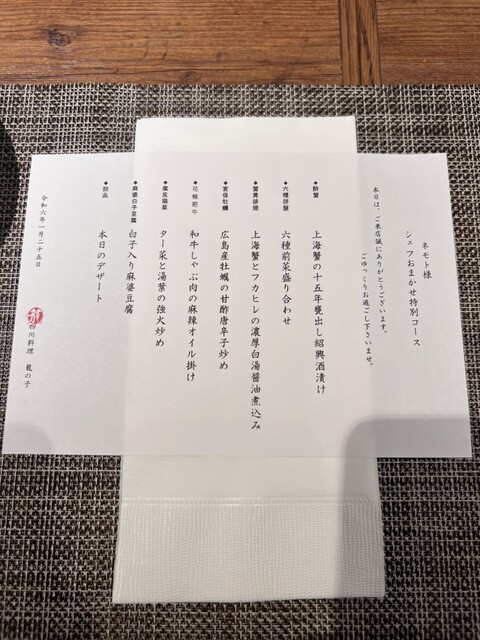 ネモト様
シェフおまかせ特別コース
本日は、ご来店誠にありがとうございます。
ごゆっくりお過ごし下さいませ。
◆酔蟹
上海蟹の十五年甕出し紹興酒漬け
◆六種拼盤
六種前菜盛り合わせ
◆蟹黄排翅
上海蟹とフカヒレの濃厚白湯醤油煮込み
◆宮保牡蠣
広島産牡蠣の甘酢唐辛子炒め
◆花椒肥牛
和牛しゃぶ肉の麻辣オイル掛け
◆腐皮塌菜
ター菜と湯葉の強火炒め
◆麻婆白子豆腐
白子入り麻婆豆腐
◆甜品
本日のデザート
令和六年一月二十五日
四川料理 龍の子